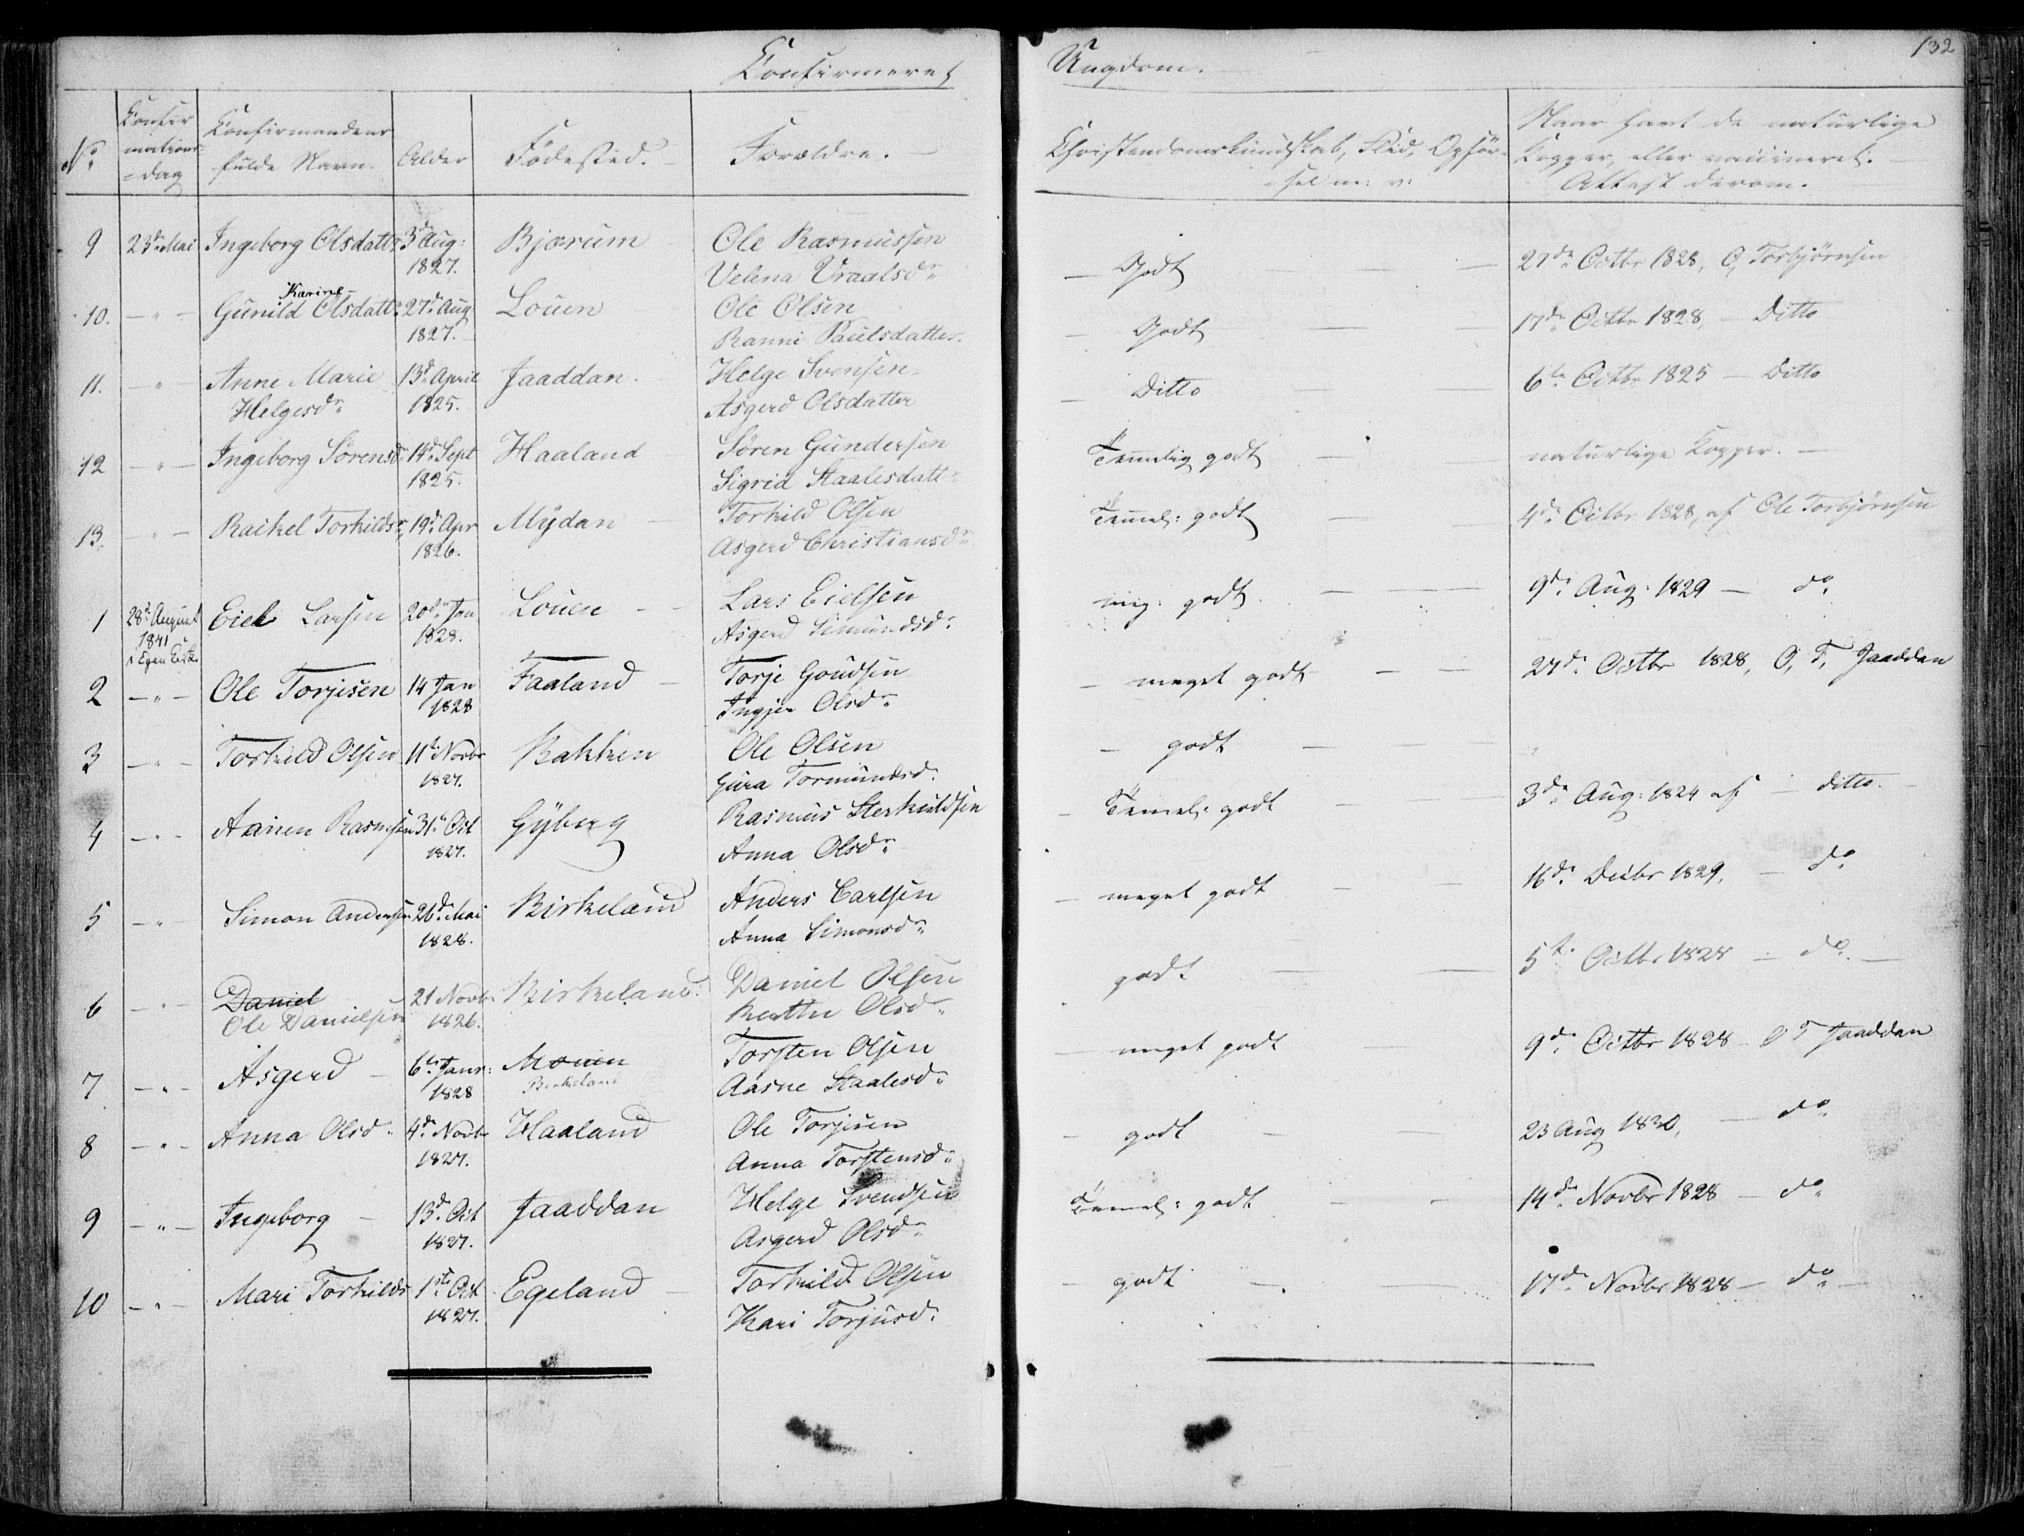 Confirmeret Ungdom.
132
No
Confirmations-dag
Confirmandens fulde Navn.
Alder
Fødested.
Forældre.
Christendomskundskab, Flid, Opførsel m: v:
Naar havt de naturlige Kopper, eller vaccineret. Attest derom.
9 23de Mai Ingeborg Olsdatter 3d Aug: 1827. Bjærum Ole Rasmussen Velena Vraalsdr Godt 27de Octbr 1828, O, Torbjørnsen
10. — " — Gunild Karine Olsdattr 27de Aug 1827. Louen Ole Olsen Ranni Paulsdatter. Godt 17de Octbr 1828, — Ditto
11. — " — Anne Marie Helgesdr 13d April 1825. Jaaddan. Helge Svensen Asgerd Olsdatter Ditto 6te Octbr 1825 — Ditto
12 — " — Ingeborg Sørensd 14de Sept 1825. Haaland Søren Gundersen Sigrid Staalesdattr Temmelig godt naturlige Kopper. —
13. — " — Rachel Torkildsr 19de Apr 1826. Mÿdan Torkild Olsen Asgerd Christiansdr Temmel: godt 4de Octbr 1828, af Ole Torbjørnsen
1 28d August 1841 i Egen Kirke Eiel Larsen 20de Jan 1828. Louen Lars Eielsen Asgerd Simundsdr meg: godt 9de Aug: 1829 — do
2 — " — Ole Torjesen 14 Jan 1828 Faaland Torje Goudsen Ingjer Olsdr meget godt 27de Octbr 1828, O, T, Jaaddan
3 — " — Torkild Olsen 11te Novbr 1827. Bakken Ole Olsen Gura Tormundsd. godt
4 — " — Aanen Rasmusen 31te Oct 1827. Gÿberg Rasmus Sterkuldsen Anna Olsdr Temmel: godt 3de Aug: 1824 af — ditto. —
5 — " — Simon Andersen 26de Mai 1828. Birkeland Anders Carlsen Anna Simonsdr meget godt 16de Decbr 1829, — do
6 — " — Daniel Ole Danielsen 21 Novbr 1826. Birkeland. Daniel Olsen Berthe Olsdr godt 5te Octbr 1828 — do —
7 — " — Asgerd — 6te Janr: 1828 Mouen Birkeland Torsten Olsen Aasne Staalesdr meget godt 9de Octbr 1828 — O T Jaaddan
8 — " — Anna Olsdr 4de Novbr 1827. Haaland Ole Torjesen Anna Torstensdr godt 23 Aug 1830, — do
9 — " — Ingeborg — 13d Oct 1827. Jaaddan Helge Svendsen Asgerd Olsdr Temmel: godt 14de Novbr 1828 — do
10 — " — Mari Torkilds 1ste Oct 1827. Egeland Torkild Olsen Kari Torjusd. godt 17de Novbr 1828 — do —